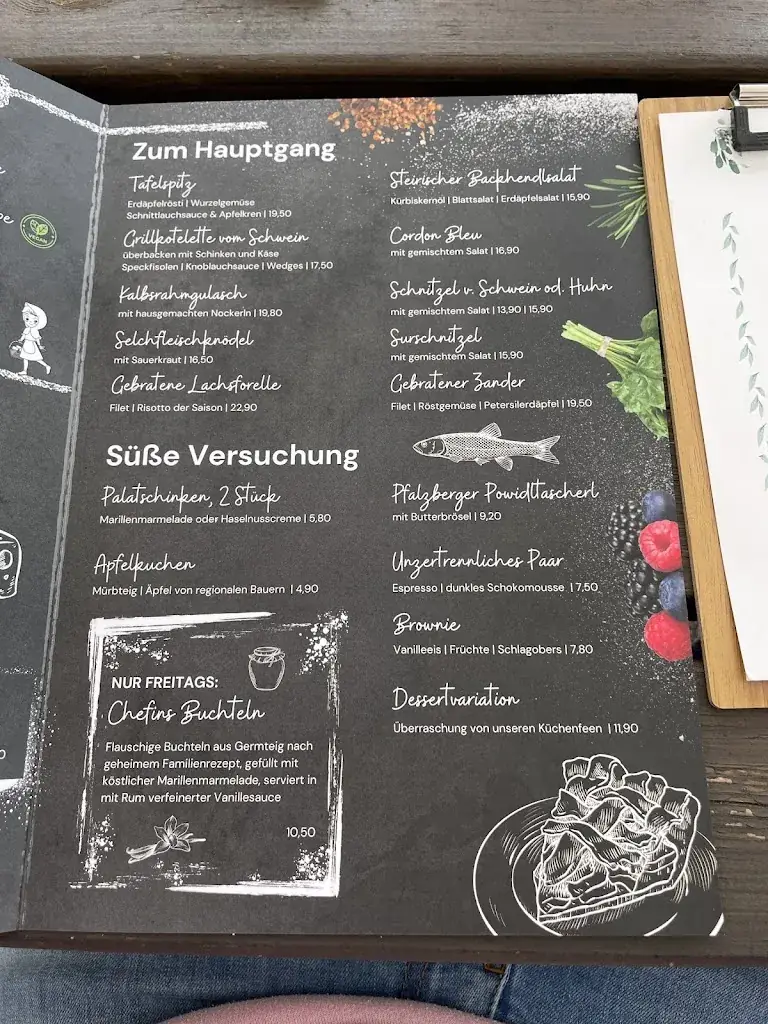 VEGAN
Zum Hauptgang
Tafelspitz
Erdäpfelrösti | Wurzelgemüse
Schnittlauchsauce & Apfelkren | 19,50
Grillkotelette vom Schwein
überbacken mit Schinken und Käse
Speckfisolen | Knoblauchsauce | Wedges | 17,50
Kalbsrahmgulasch
mit hausgemachten Nockerln | 19,80
Selchfleischknödel
mit Sauerkraut | 16,50
Gebratene Lachsforelle
Filet | Risotto der Saison | 22,90
Steirischer Backhendlsalat
Kürbiskernöl | Blattsalat | Erdäpfelsalat | 15,90
Cordon Bleu
mit gemischtem Salat | 16,90
Schnitzel v. Schwein od. Huhn
mit gemischtem Salat | 13,90 | 15,90
Surschnitzel
mit gemischtem Salat | 15,90
Gebratener Zander
Filet | Röstgemüse | Petersilerdäpfel | 19,50
Süße Versuchung
Palatschinken, 2 Stück
Marillenmarmelade oder Haselnusscreme | 5,80
Apfelkuchen
Mürbteig | Äpfel von regionalen Bauern | 4,90
NUR FREITAGS:
Chefins Buchteln
Flauschige Buchteln aus Germteig nach
geheimem Familienrezept, gefüllt mit
köstlicher Marillenmarmelade, serviert in
mit Rum verfeinerter Vanillesauce
10,50
Pfalzberger Powidltascherl
mit Butterbrösel | 9,20
Unzertrennliches Paar
Espresso | dunkles Schokomousse | 7,50
Brownie
Vanilleeis | Früchte | Schlagobers | 7,80
Dessertvariation
Überraschung von unseren Küchenfeen | 11,90